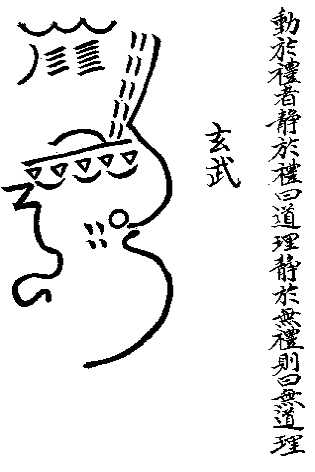 動於禮者静於禮曰道理静於無禮則曰無道理
玄武